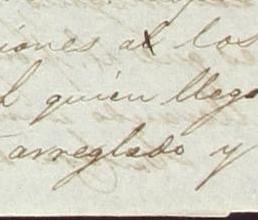 iones al los
l quien llego
arreglado y